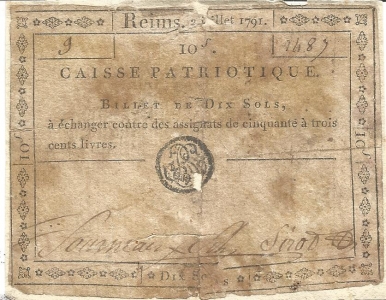 Reims, 2 Juillet 1791.
9 10 s. 2487
CAISSE PATRIOTIQUE.
BILLET DE DIX SOLS,
à échanger contre des assignats de cinquante à trois
cents livres.
10 s
10 s
Dix